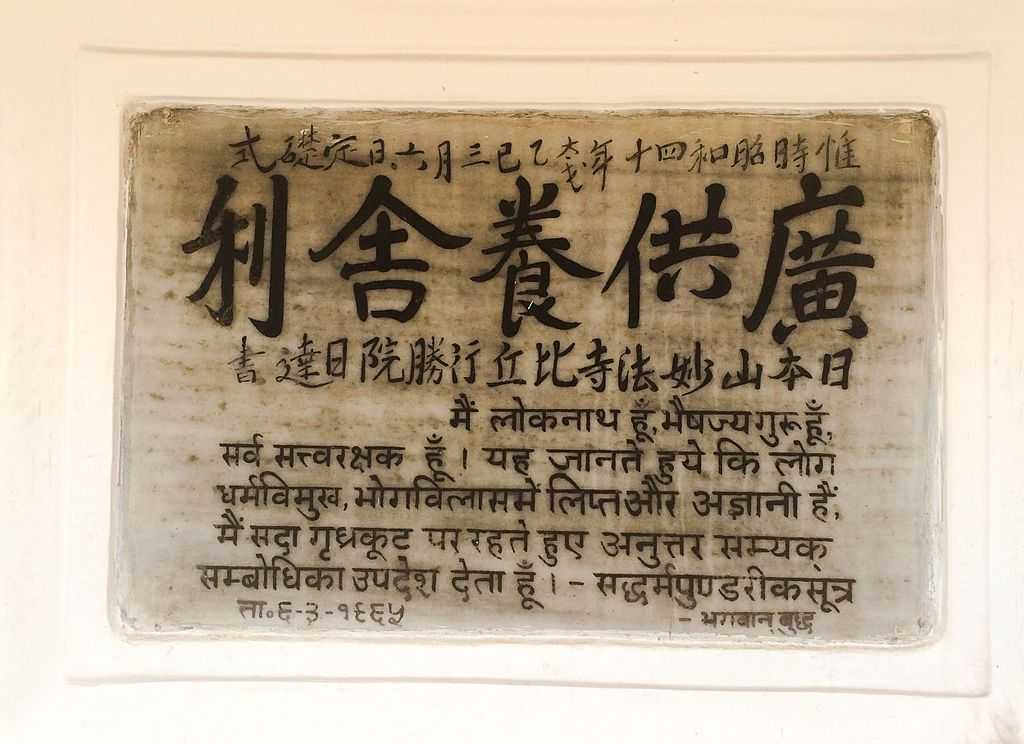 惟時昭和四十年太歳乙巳三月六日定礎式
廣供養舎利
日本山妙法寺比丘行勝院日達書
मैं लोकनाथ हूँ, भैषज्यगुरू हूँ,
सर्व सत्त्वरक्षक हूँ । यह जानते हुये कि लोग
धर्मविमुख, भोगविलासमें लिप्त और अज्ञानी हैं,
मैं सदा गृध्रकूट पर रहते हुए अनुत्तर सम्यक्
सम्बोधिका उपदेश देता हूँ । - सद्धर्मपुण्डरीकसूत्र
ता॰ ६-३-१९६५ - भगवान् बुद्ध